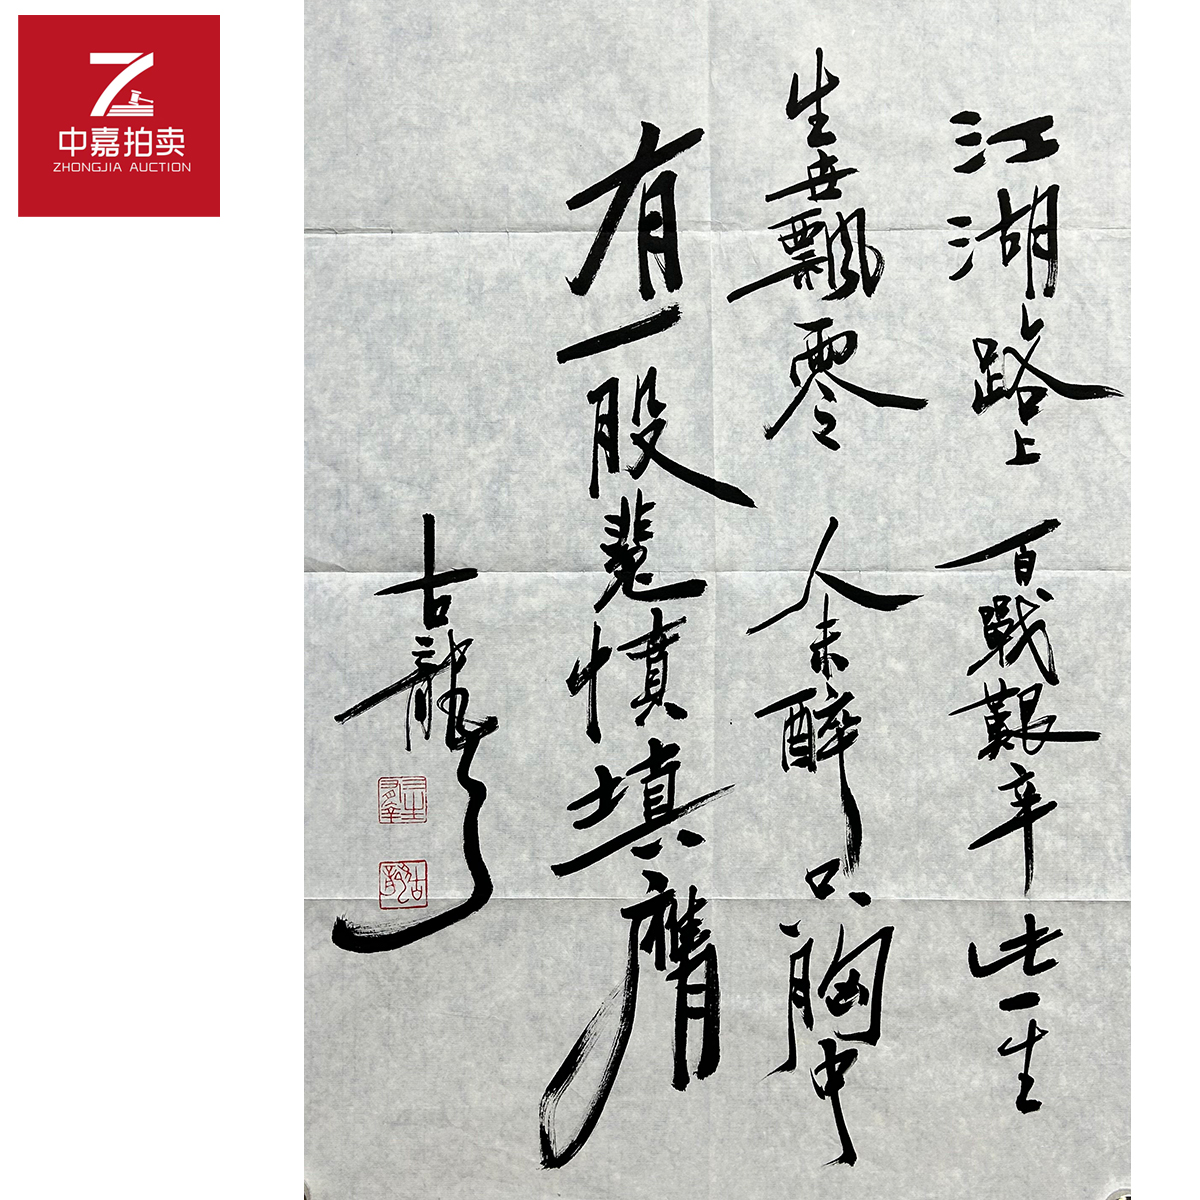 中嘉拍卖
ZHONGJIA AUCTION
江湖路上 百戰艱辛 此一生
生世飄零 人未醉 只胸中
有一股悲憤填膺
古龍
三生有幸
古龍